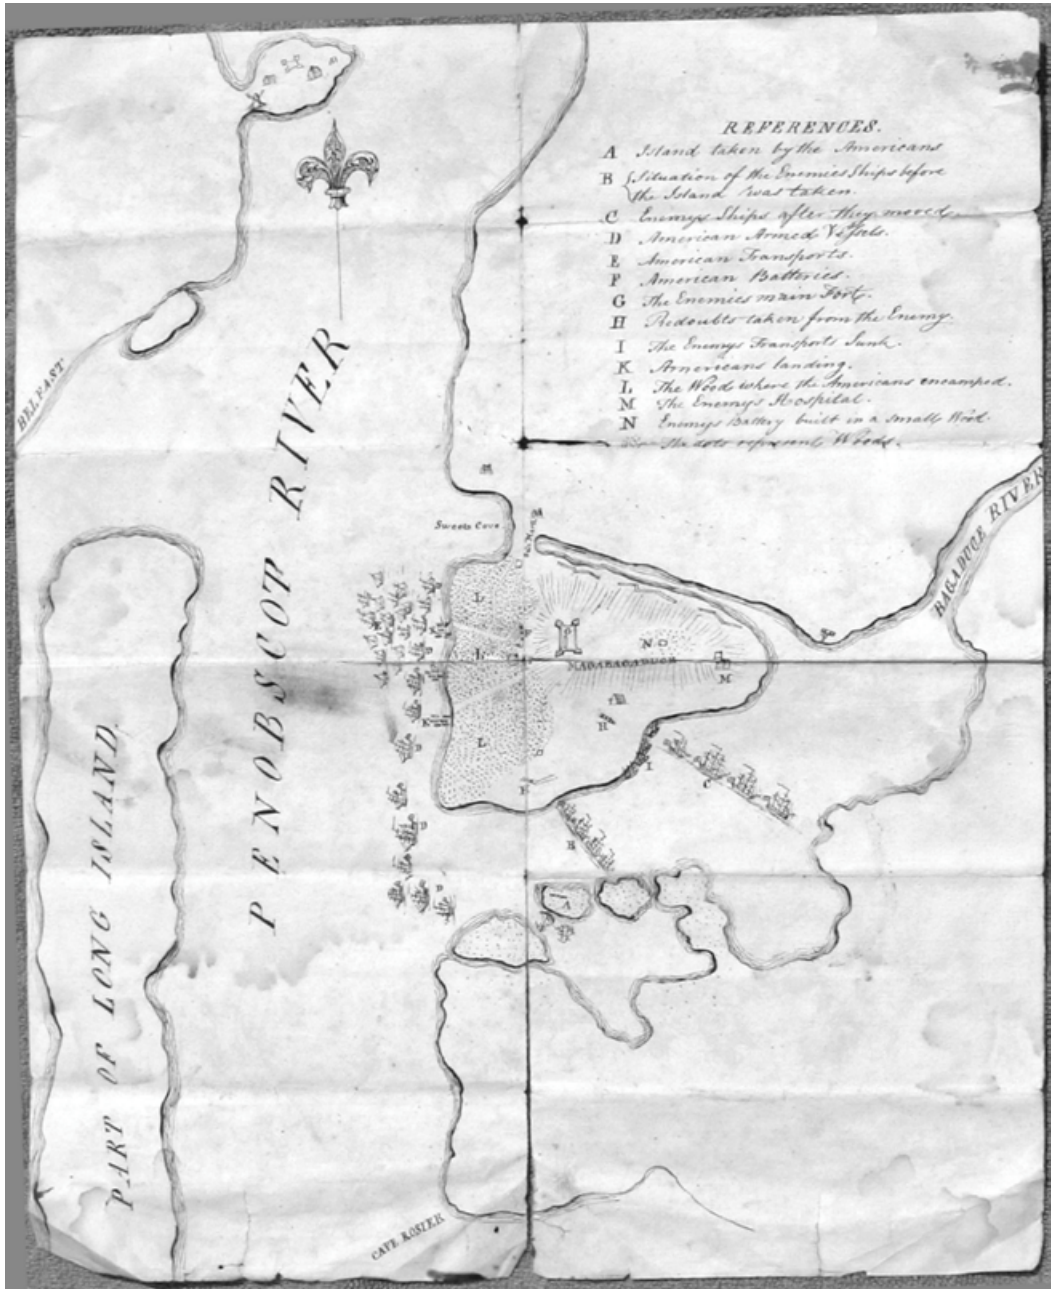 REFERENCES.
A Island taken by the Americans
B Situation of the Enemies Ships before
the Island was taken.
C Enemys Ships after they moved.
D American Armed Vessels.
E American Transports.
F American Batteries.
G The Enemies main Fort.
H Redoubts taken from the Enemy.
I The Enemys Transports Sunk.
K Americans landing.
L The Wood where the Americans encamped.
M The Enemy's Hospital.
N Enemys Battery built in a small Wood.
The dots represent Woods.
BELFAST
PENOBSCOT RIVER
BAGADUCE RIVER
Sweets Cove
L
L
L
K
N
MAGABAGADUCE
M
H
I
F
C
D
D
D
B
A
PART OF LONG ISLAND
CAPE ROSIER